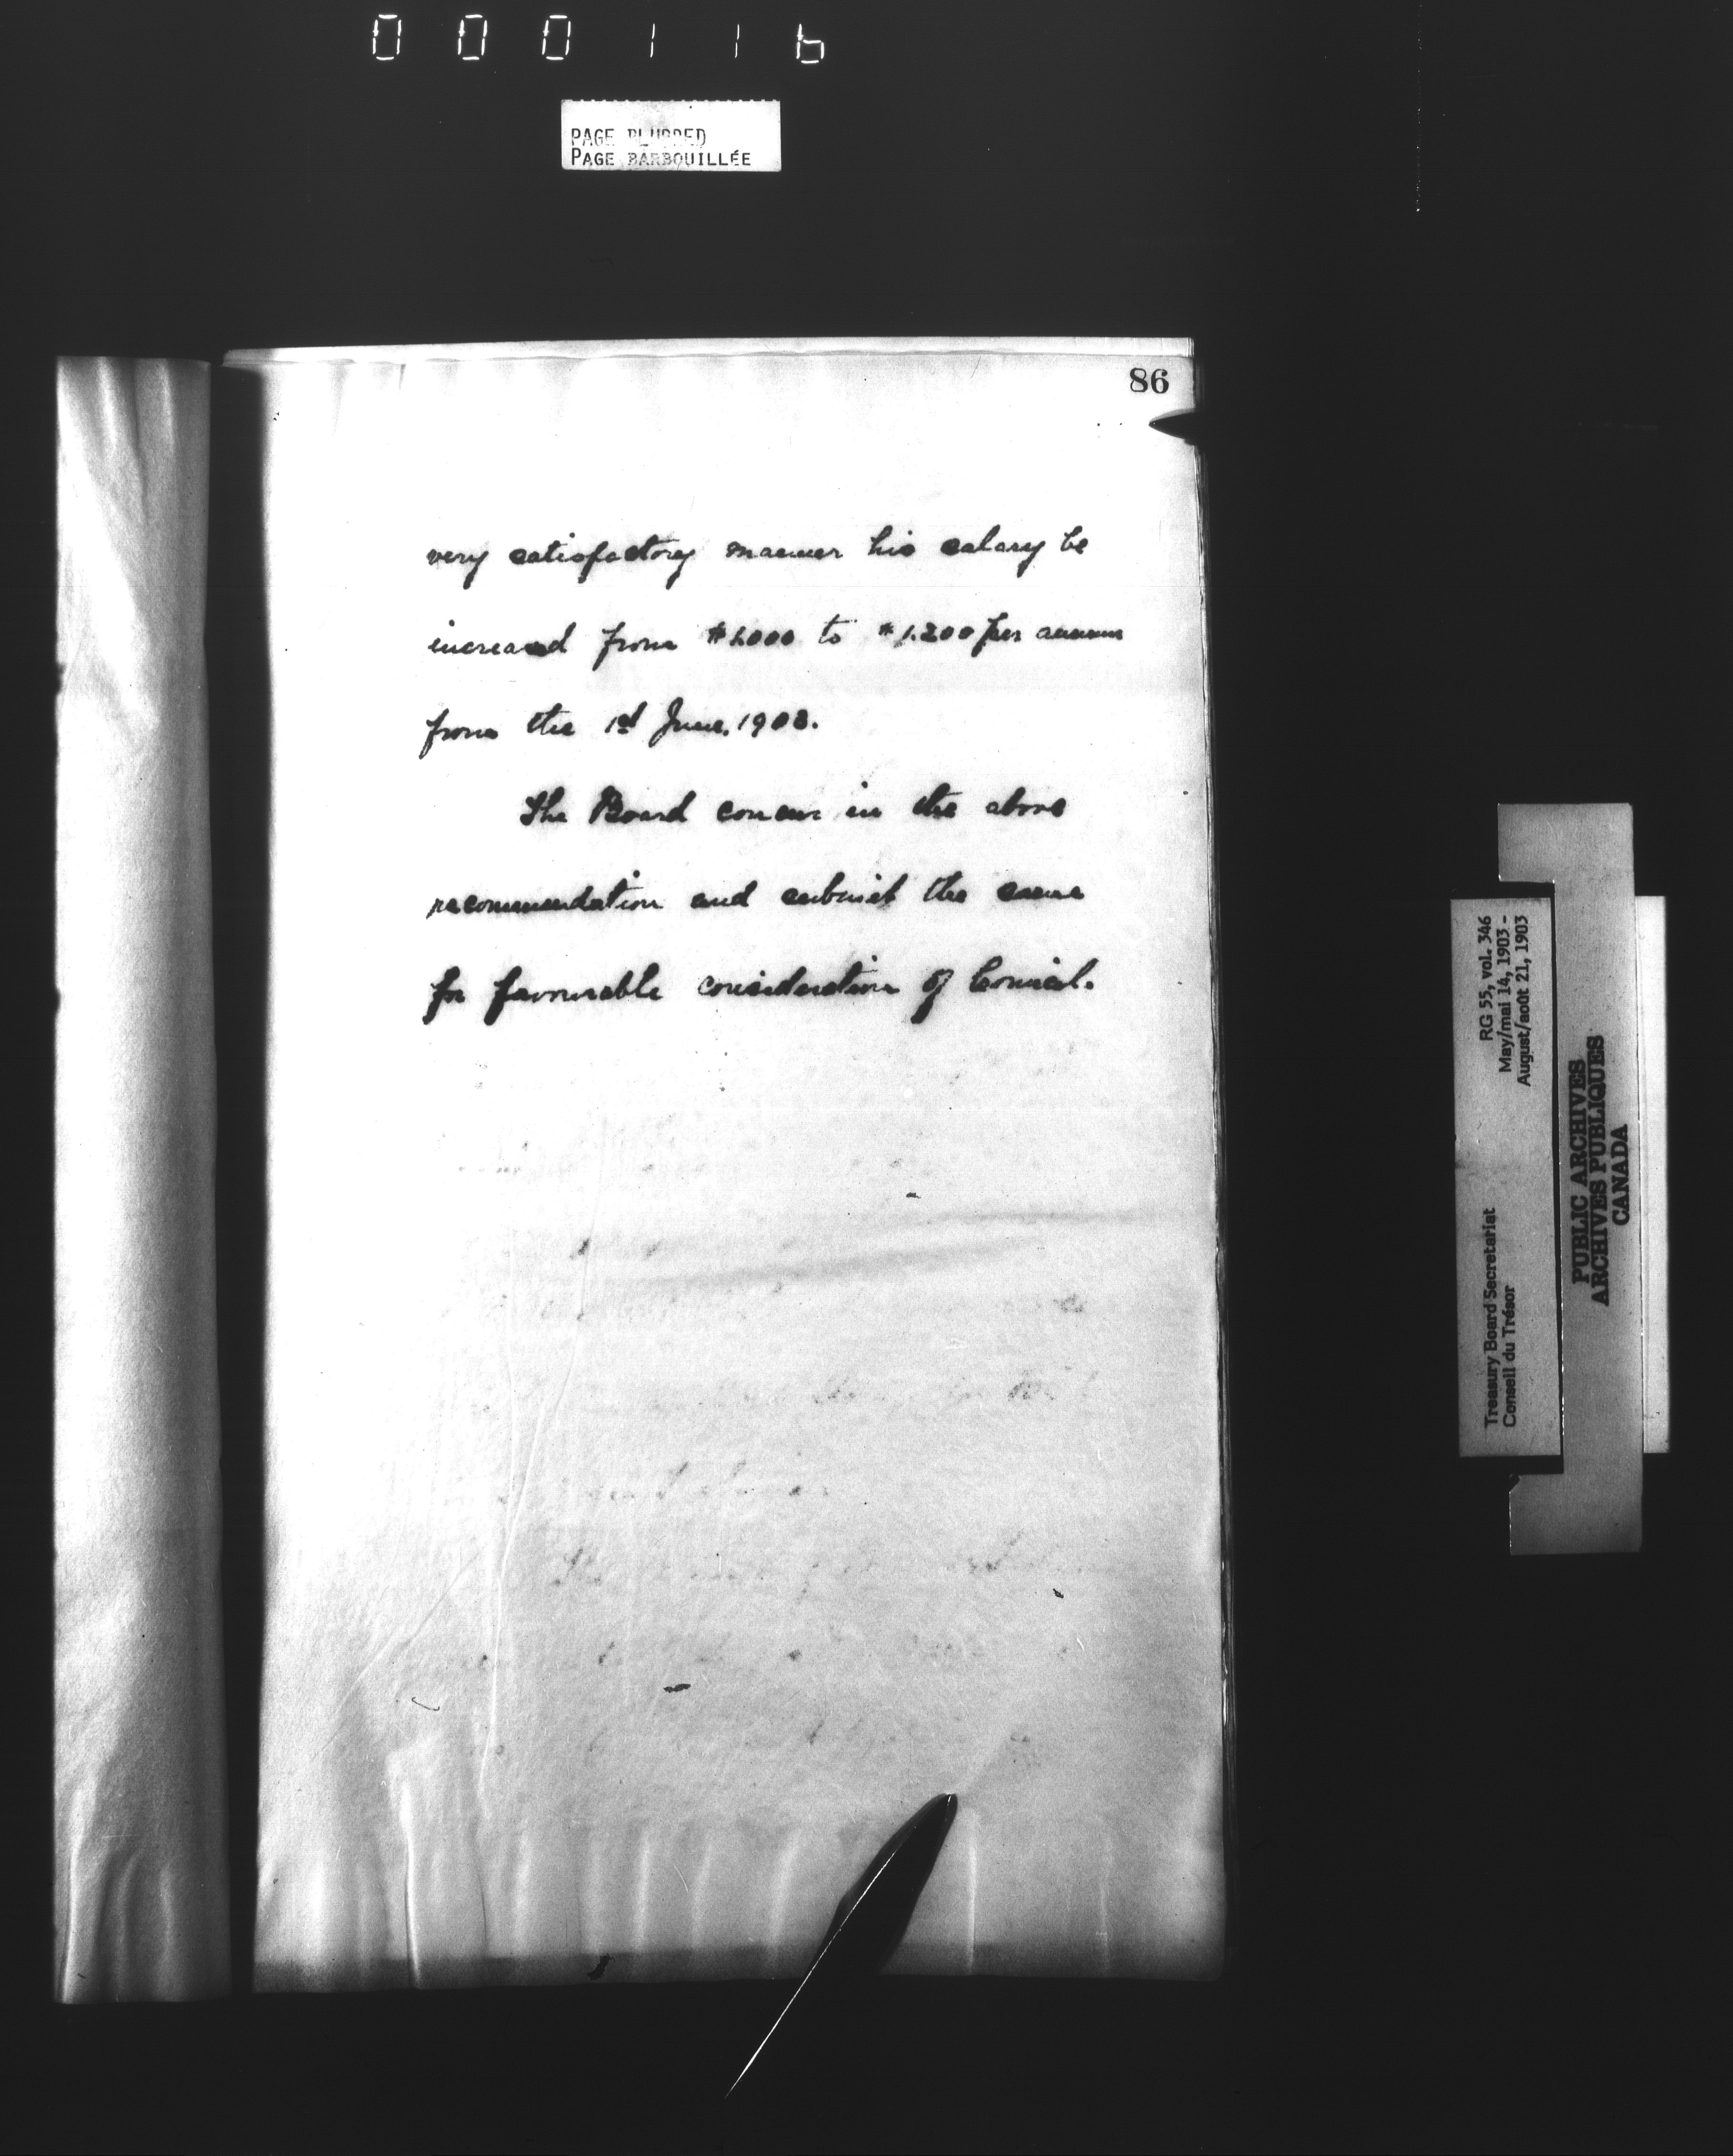 000116
PAGE BLURRED
PAGE BARBOUILLÉE
86
very satisfactory manner his salary be
increased from $1.000 to $1.200 per annum
from the 1st June, 1903.
The Board concur in the above
recommendation and submit the same
for favourable consideration of Council.
RG 55, vol. 346
May/mai 14, 1903 -
August/août 21, 1903
Treasury Board Secretariat
Conseil du Trésor
PUBLIC ARCHIVES
ARCHIVES PUBLIQUES
CANADA